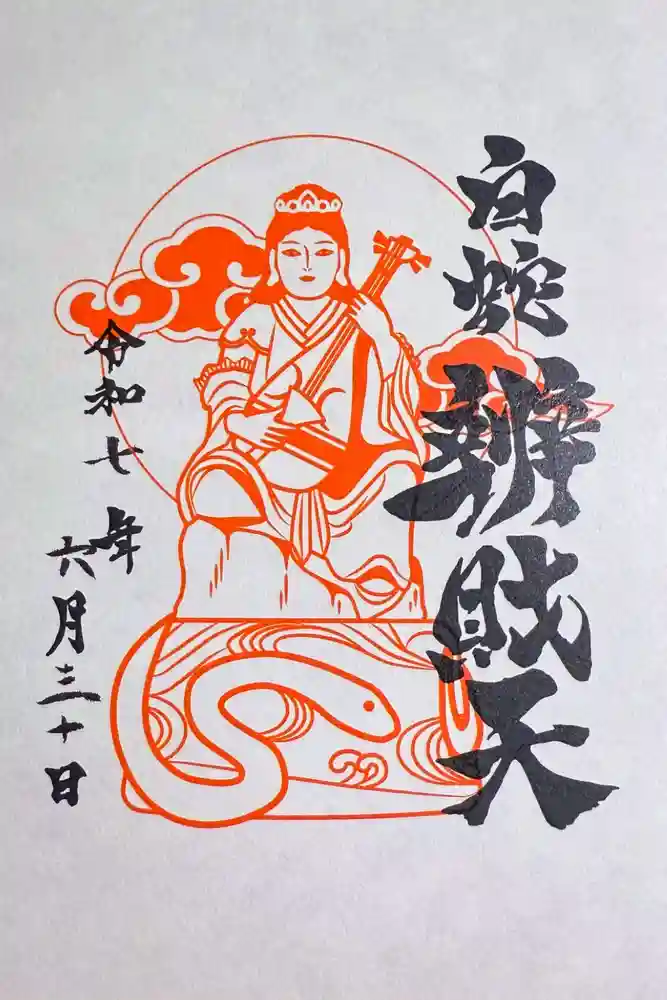 白蛇辨財天
令和七年
六月三十日